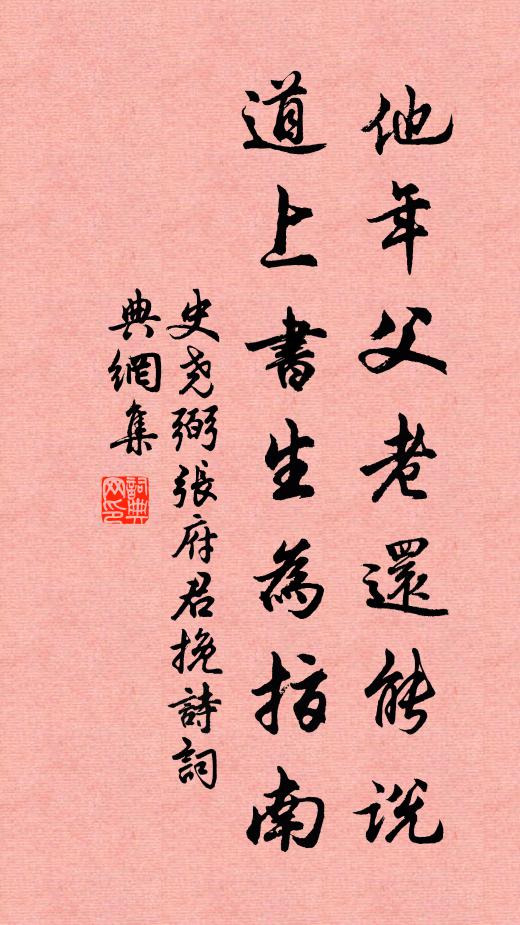 他年父老還能說
道上書生為指南
史尧弼張府君挽詩詞
典網集
詞典
网印